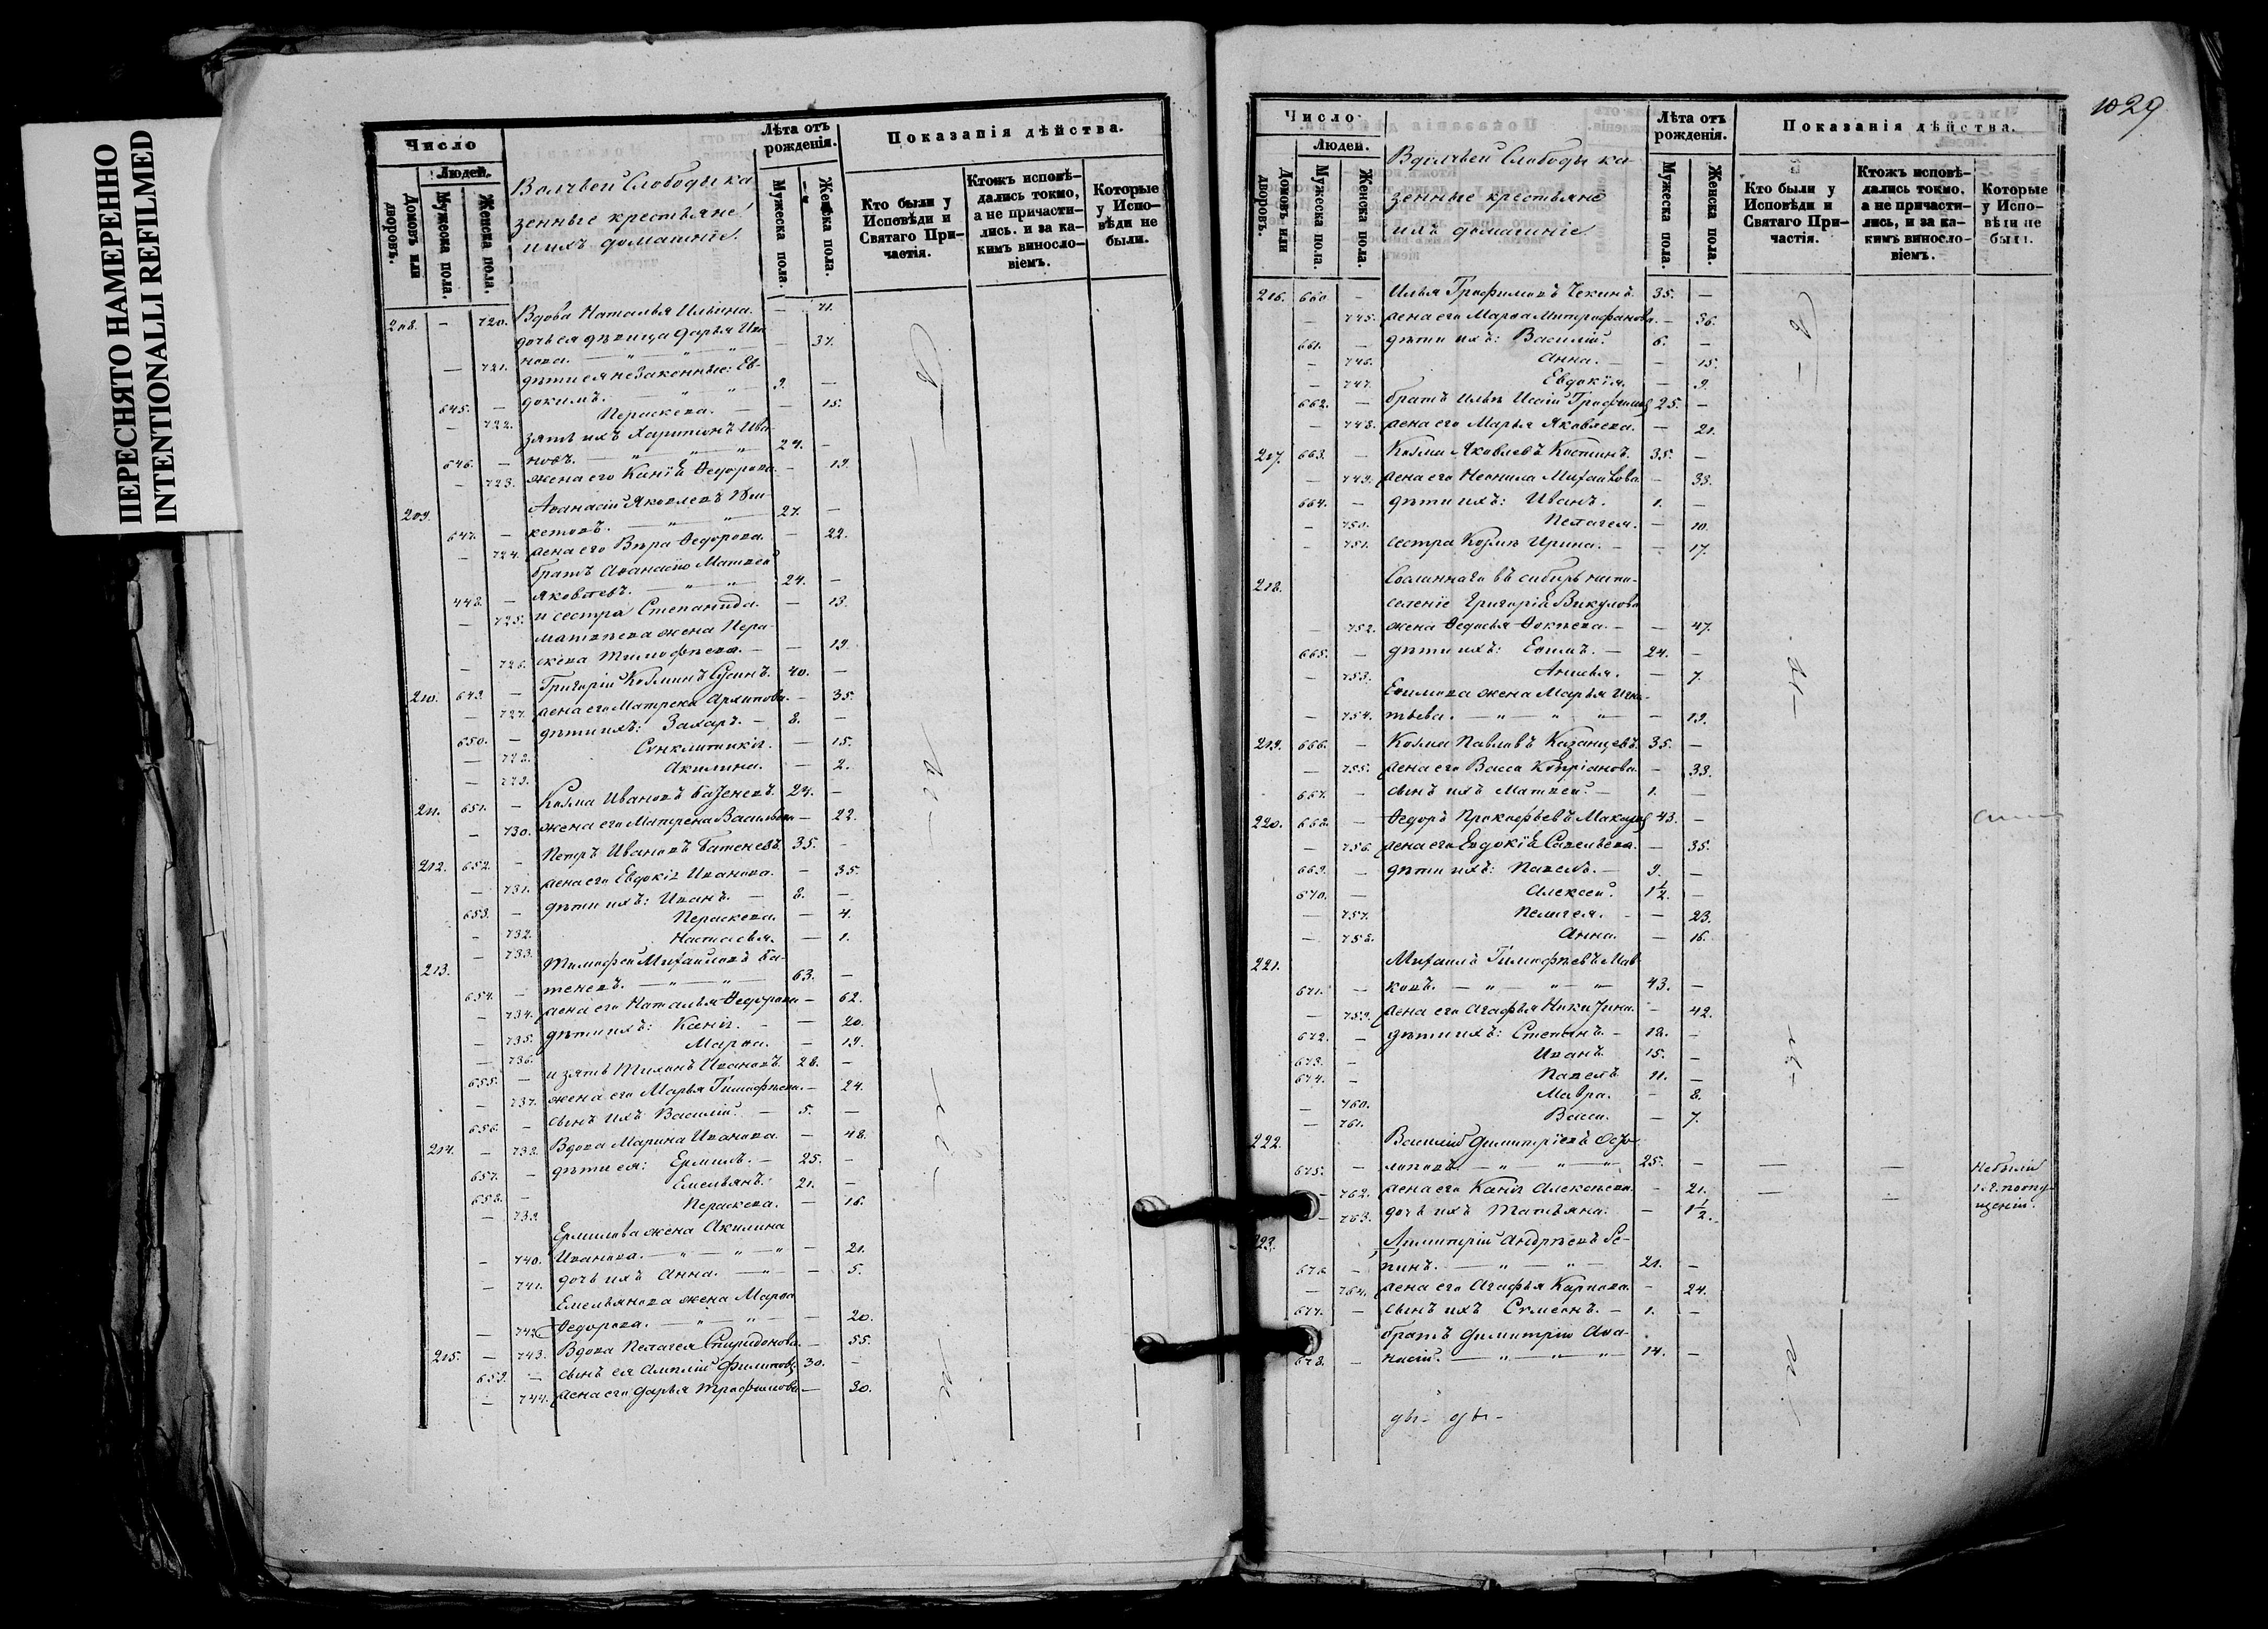 ПЕРЕСНЯТО НАМЕРЕННО
INTENTIONALLI REFILMED
Число
Людей.
Домовъ или дворовъ.
Мужеска пола.
Женска пола.
Волчьей Слободы ка
зенные крестьяне
ихъ домашнiе.
Лѣта отъ рожденiя.
Мужеска пола.
Женска пола.
Показанiя дѣйства.
Кто были у Исповѣди и Святаго При-частiя.
Ктожъ исповѣ-дались токмо, а не причасти-лись. и за ка-кимъ винosло-вiемъ.
Которые у Испо-вѣди не были.
208. — 720. Вдова Наталья Ильина. — 71.
дочь ея дѣвица Дарья Ива
— 721. нова. — " — " — 37.
дѣти ея незаконные: Ев-
645. — докимъ. — " — " 9. —
— 722. Пераскева. — — 15.
зять ихъ Харитонъ Ива
646. — новъ. — " — " 24. —
— 723. жена его Ксенiя Ѳедорова. — 19.
209. Аѳанасiй Яковлевъ
647. — кетовъ. — " — " 27. —
— 724. жена его Вѣра Ѳедорова. — 22.
братъ Аѳанасiю Матвей
448. — Яковлевъ. — " — " 24. —
— 725. и сестра Степанида. — 13.
Матвѣева жена Пера-
— 726. скева Тимофѣева. — — 19.
210. 649. — Григорiй Козминъ Сусинъ. 40. —
— 727. жена его Матрена Архипова. — 35.
650. — дѣти ихъ: Захаръ. — 8. —
— 728. Сѵнклитикiя. — 15.
— 729. Акилина. — 2.
211. 651. — Козма Ивановъ Батеневъ. 24. —
— 730. жена его Матрена Васильева — 22.
212. 652. — Петръ Ивановъ Батеневъ. 35. —
— 731. жена его Евдокiя Иванова. — 35.
653. — дѣти ихъ: Иванъ. — 8. —
— 732. Пераскева. — 4.
— 733. Настасья. — 1.
213. Тимофей Михайловъ Ба-
654. — теневъ. — " — " 63. —
— 734. жена его Наталья Ѳедорова — 62.
— 735. дѣти ихъ: Ксенiя. — — 20.
— 736. Марѳа. — 19.
655. — и зять Тихонъ Ивановъ. 28. —
— 737. жена его Марья Тимофѣева. — 24.
656. — сынъ ихъ Василiй. — 5. —
214. — 738. Вдова Марина Иванова. — 48.
657. — дѣти ея: Ермилъ. — 25. —
658. — Емельянъ. 21. —
— 739. Пераскева. — 16.
Ермилова жена Акилина
— 740. Иванова. — " — " — " — 21.
— 741. дочь ихъ Анна. — " — — 5.
Емельянова жена Марѳа
— 742. Ѳедорова. — " — " — — 20.
215. — 743. Вдова Пелагея Спиридонова. — 55.
659. — сынъ ея Амплiй Филиповъ 30. —
— 744. жена его Дарья Трофимова — 30.
1029
Число
Людей.
Домовъ или дворовъ.
Мужеска пола.
Женска пола.
Волчьей Слободы ка-
зенные крестьяне
ихъ домашнiе
Лѣта отъ рожденiя.
Мужеска пола.
Женска пола.
Показанiя дѣйства.
Кто были у Исповѣди и Святаго При-частiя.
Ктожъ исповѣ-дались токмо, а не причасти-лись, и за ка-кимъ винosло-вiемъ.
Которые у Испо-вѣди не были.
216. 660 — Илья Трофимовъ Чекинъ. 35. —
— 745. жена его Марѳа Митрофанова. — 36.
661. — дѣти ихъ: Василiй. 6. —
— 746. Анна. — — 15.
— 747. Евдокiя. — 9.
662. — братъ Ильи Исаiй Трофимовъ 25. —
— 748. жена его Марья Яковлева. — 21.
217. 663. — Козма Яковлевъ Костинъ. 35. —
— 749. жена его Неонила Михайлова — 33.
664. — дѣти ихъ: Иванъ. 1. —
— 750. Пелагея. — 10.
— 751. сестра Козмѣ Ирина. — — 17.
218. Сосланнаго въ сибирь на по-
селенiе Григорiя Викулова
— 752. жена Ѳедосья Ѳокѣева. — — 47.
665. — дѣти ихъ: Еѳимъ. — 24. —
— 753. Анисья. — 7.
Еѳимова жена Марья Игна-
— 754. тьева. — " — " — " — 19.
219. 666. — Козма Павловъ Казанцевъ. 35. —
— 755. жена его Васса Кипрiанова. — 33.
667. — сынъ ихъ Матвей. — 1. —
220. 668. — Ѳедоръ Прокофьевъ Макаровъ 43. —
— 756. жена его Евдокiя Савельева. — 35.
669. — дѣти ихъ: Павелъ. — 9. —
670. — Алексей. 1½. —
— 757. Пелагея. — — 23.
— 758. Анна. — 16.
221. Михаилъ Тимофѣевъ Мав
671. — ковъ. — " — " — " 43. —
— 759. жена его Агафья Никитина. — 42.
672. — дѣти ихъ: Степанъ. — 18. —
673. — Иванъ 15. —
674. — Павелъ 11. —
— 760. Мавра. — 8.
— 761. Васса. — 7.
222. Василiй Димитрiевъ
675. — лаповъ. — " — " — " 25. — — — Небыли
— 762. жена его Ксенiя Алексѣева. — 21. — — по опу-
— 763. дочь ихъ Татьяна. — 1½. щенiю.
223. Димитрiй Андрѣевъ Ре-
676. — пинъ. — " — " — 21. —
— 764. жена его Агафья Карпова. — 24.
677. — сынъ ихъ Сѵмеонъ. — 1. —
братъ Димитрiю Аѳа-
678. — насiй. — " — " — " 14. —